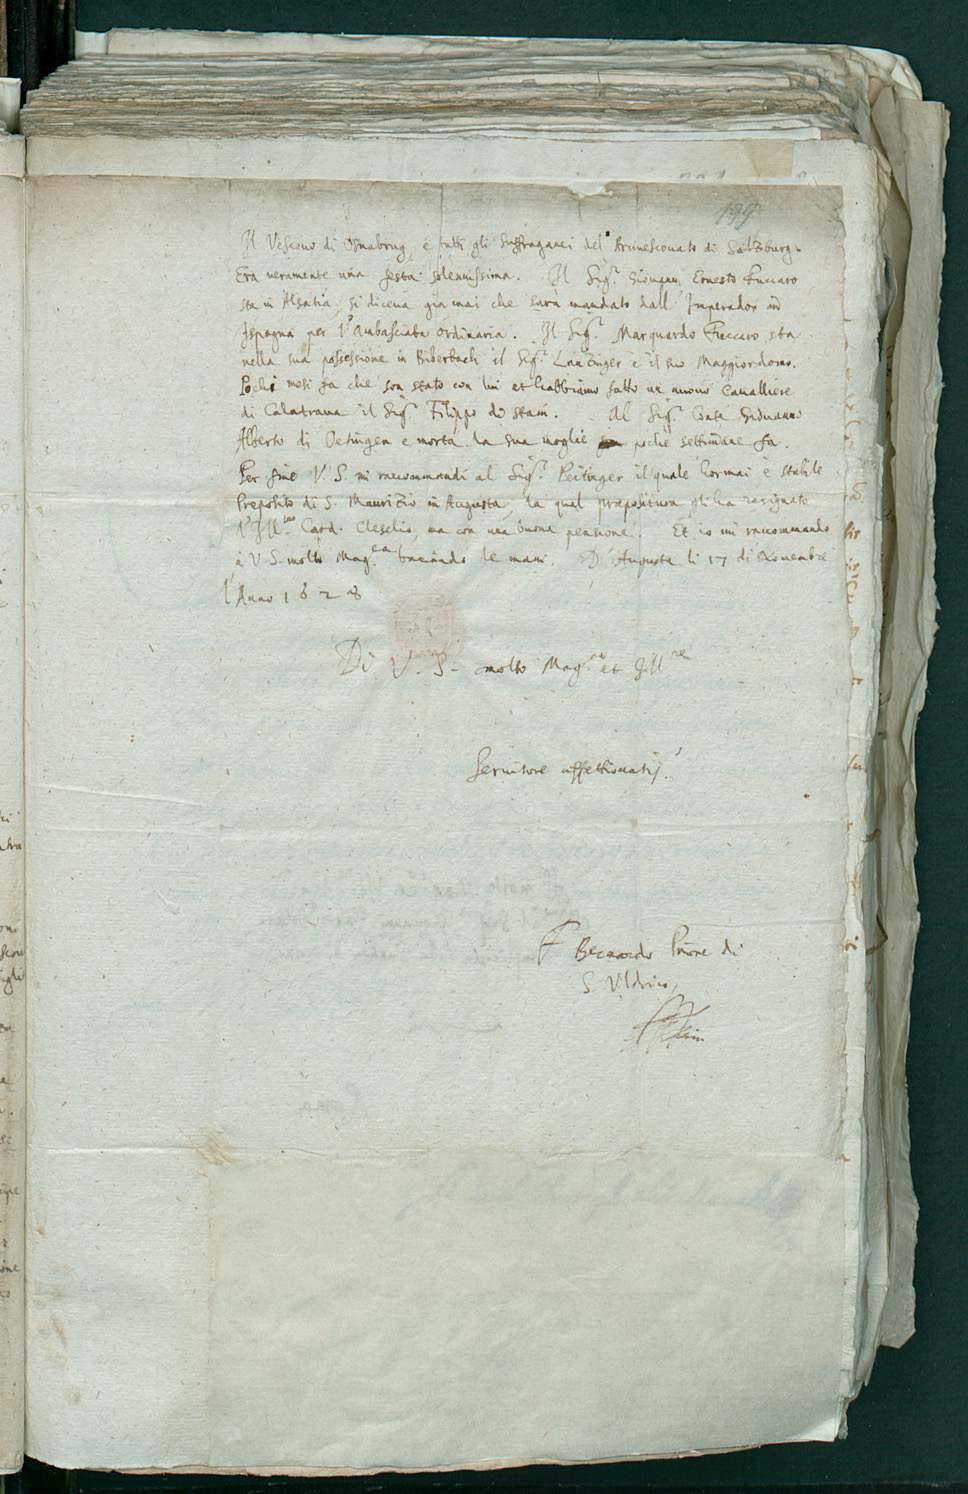 199
Il Vescouo di Osnabrug, e tutti gli suffraganei del Arciuescouato di Salzburg.
Era veramente una festa solennissima. Il Sigr. Giouann Ernesto Fuccaro
sta in Alsatia, si diceua gia mai che sarà mandato dall' Imperador in
Ispagna per l'ambasciata ordinaria. Il Sigr. Marquardo Fuccaro sta
nella sua possessione in Biberbach il Sigr. Lantzinger è il suo Maggiordomo.
Pochi mesi fa che son stato con lui et habbiamo fatto un nuouo Caualliere
di Calatraua il Sigr. Filippo di Stain. Al Sigr. Conte Giouanni
Alberto di Oetingen e morta la sua moglie poche settimane fa.
Per fine V.S. mi raccommandi al Sigr. Peitinger il quale hormai è stabile
Preposito di S. Mauritio in Augusta, la qual præpositura gli ha resignato
l'Illmo Card. Cleselio, ma con una buona pensione. Et io mi raccommando
à V.S. molto Magca baciando le mani. D'Augusta li 17 di Nouembre
l'Anno 1628
Di V.S. molto Magca et Illre
Seruitore affettionatis.
F Bernardo Priore di
S Vldrico,